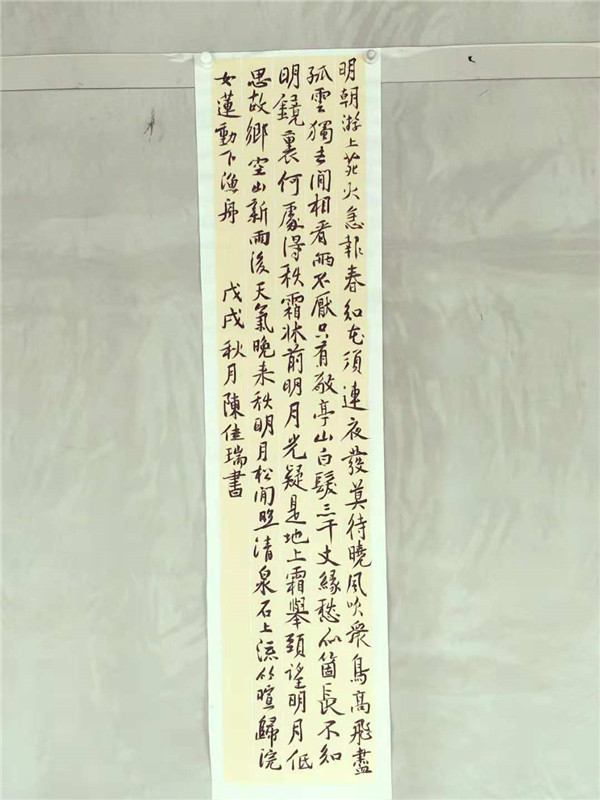 明朝游上苑火急報春知花須連夜發莫待曉風吹衆鳥高飛盡
孤雲獨去閒相看兩不厭只有敬亭山白髮三千丈緣愁似箇長不知
明鏡裏何處得秋霜牀前明月光疑是地上霜舉頭望明月低
思故鄉空山新雨後天氣晚来秋明月松間照清泉石上流竹喧歸浣
女蓮動下漁舟 戊戌秋月陳佳瑞書